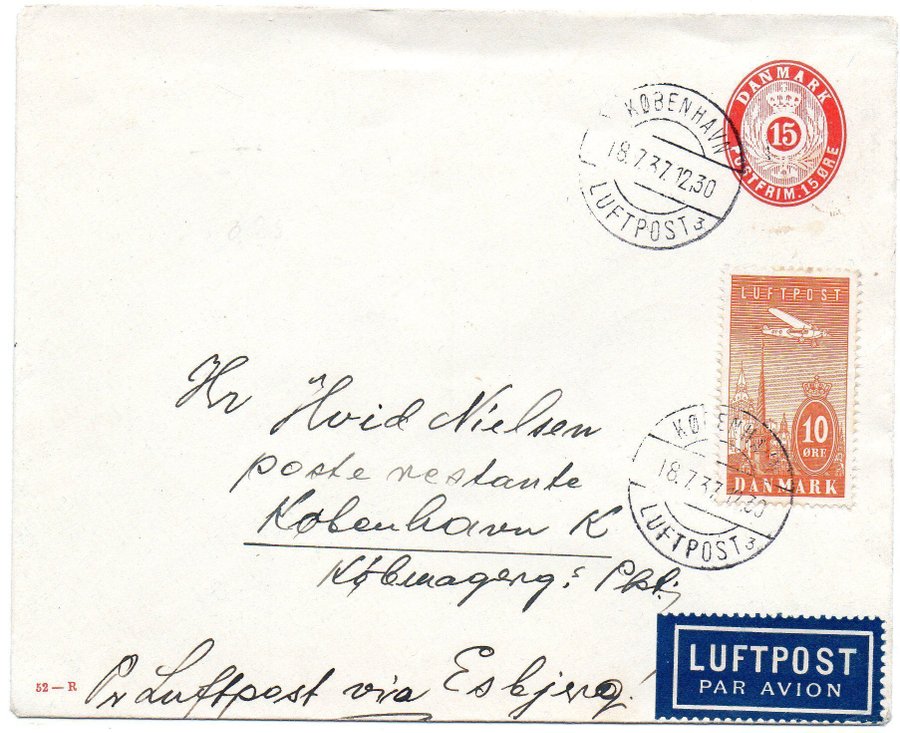 DANMARK
15
POSTFRIM. 15 ØRE
KØBENHAVN
18.7.37.12.30
LUFTPOST 3
LUFTPOST
10
ØRE
DANMARK
KØBENHAVN
18.7.37.12.30
LUFTPOST 3
Hr Hvid Nielsen
poste restante
København K
Købmagerg.s Pkt.
Pr Luftpost via Esbjerg!
52 — R
LUFTPOST
PAR AVION